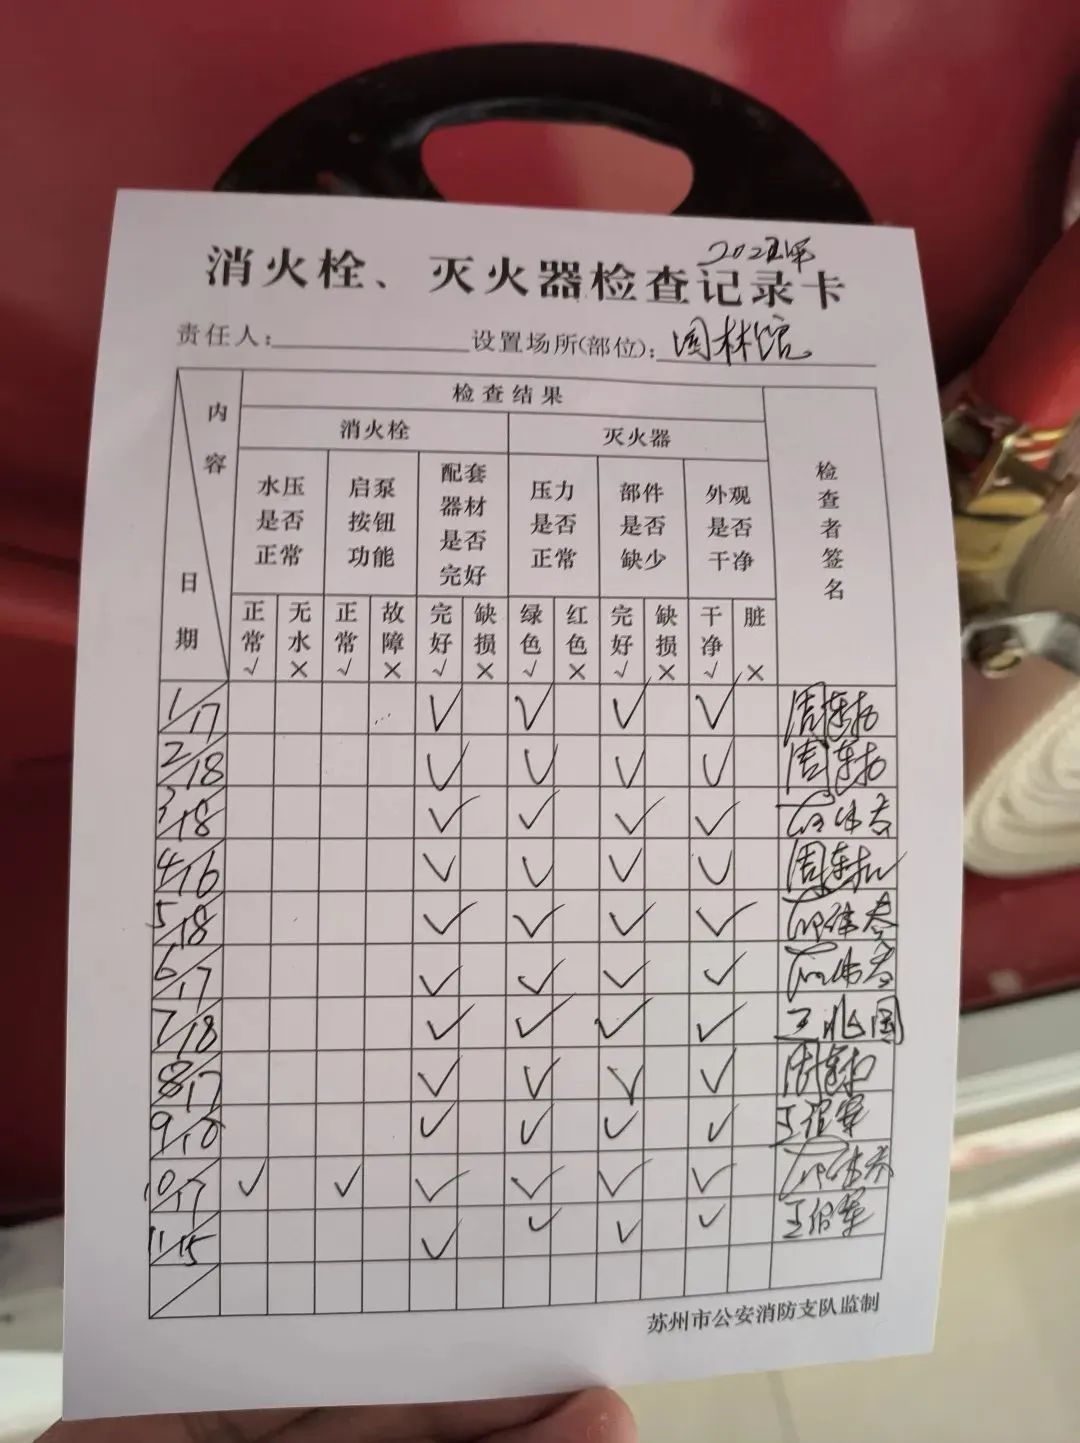 消火栓、灭火器检查记录卡
责任人: 设置场所(部位): 园林馆
内容
日期
检查结果
检查者签名
消火栓 灭火器
水压是否正常 启泵按钮功能 配套器材是否完好 压力是否正常 部件是否缺少 外观是否干净
正常√ 无水× 正常√ 故障× 完好√ 缺损× 绿色√ 红色× 完好√ 缺损× 干净√ 脏×
1/17 √ √ √ √
2/18 √ √ √ √
3/18 √ √ √ √
4/16 √ √ √ √
5/18 √ √ √ √
6/17 √ √ √ √
7/18 √ √ √ √ 王兆国
8/17 √ √ √ √
√ √ √ √
10/17 √ √ √ √ √ √
11/15 √ √ √ √
苏州市公安消防支队监制